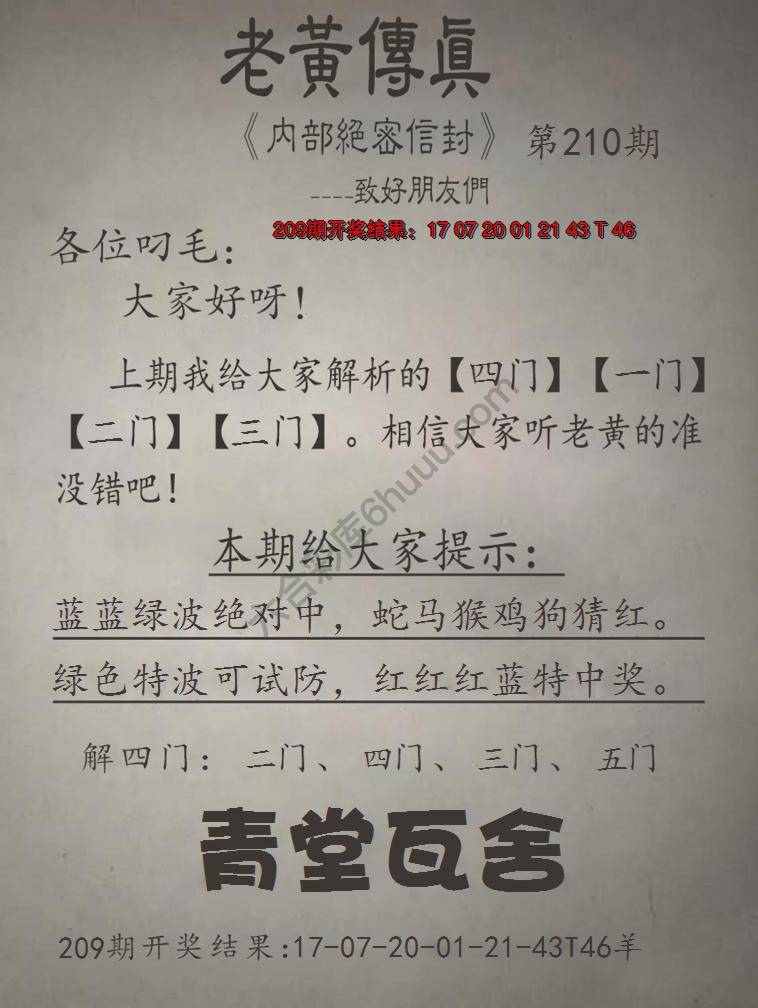 老黃傳真
《内部絕密信封》 第210期
----致好朋友們
209期开奖结果：17 07 20 01 21 43 T 46
各位叼毛：
大家好呀！
上期我给大家解析的【四门】【一门】
【二门】【三门】。相信大家听老黄的准
没错吧！
本期给大家提示：
蓝蓝绿波绝对中，蛇马猴鸡狗猜红。
绿色特波可试防，红红红蓝特中奖。
解四门：二门、四门、三门、五门
青堂瓦舍
209期开奖结果:17-07-20-01-21-43T46羊
六合彩库6huuu.com